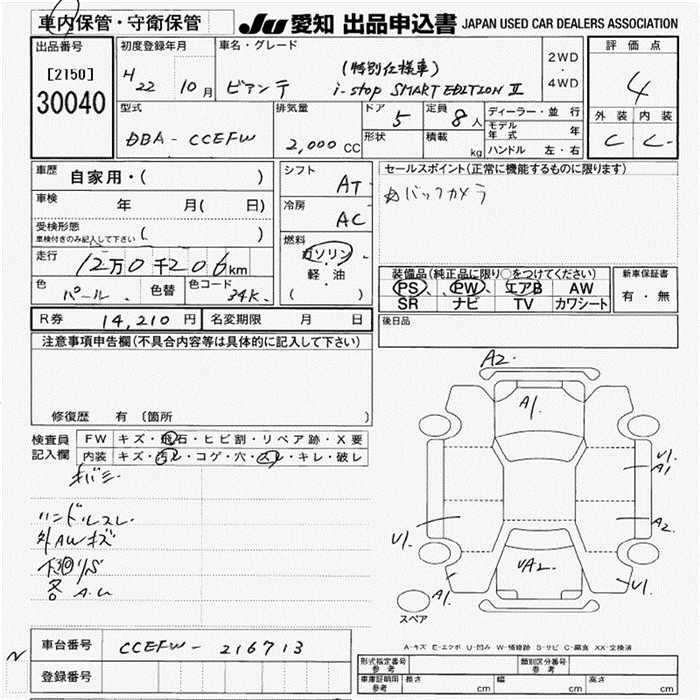 車内保管・守衛保管
JU 愛知 出品申込書 JAPAN USED CAR DEALERS ASSOCIATION
出品番号
[2150]
30040
初度登録年月
H22 10月
車名・グレード
(特別仕様車)
ビアンテ i-stop SMART EDITION II
2WD
・
4WD
評価点
4
外装 内装
C C
型式
DBA-CCEFW
排気量
2,000 CC
ドア 5
形状
定員 8人
積載 kg
ディーラー・並行
モデル年式 年
ハンドル 左・右
車歴 自家用・( )
車検 年 月( 日)
受検形態
車検付きのみ記入して下さい ( )
走行 12万0千206km
色 パール
色替
色コード 34K
シフト AT
冷房 AC
燃料
ガソリン
軽油
( )
セールスポイント(正常に機能するものに限ります)
バックカメラ
装備品(純正品に限り○をつけてください)
PS、 PW、 エアB AW
SR ナビ TV カワシート
新車保証書
有・無
R券 14,210円 名変期限 月 日
後日品
注意事項申告欄(不具合内容等は具体的に記入して下さい)
修復歴 有 (箇所 )
検査員記入欄
FW キズ・飛石・ヒビ割・リペア跡・X要
内装 キズ・汚レ・コゲ・穴・スレ・キレ・破レ
キバミ
ハンドルスレ
外AWキズ
下廻りS
各A.U
A2
A1
U1
A1
A2
U1
UA2
A1
U1
スペア
A-キズ E-エクボ U-凹み W-補修跡 S-サビ C-腐食 XX-交換済
車台番号 CCEFW-216713
登録番号
形式指定番号
参考
類別区分番号
参考
車庫証明用
参考
長さ cm 幅 cm 高さ cm